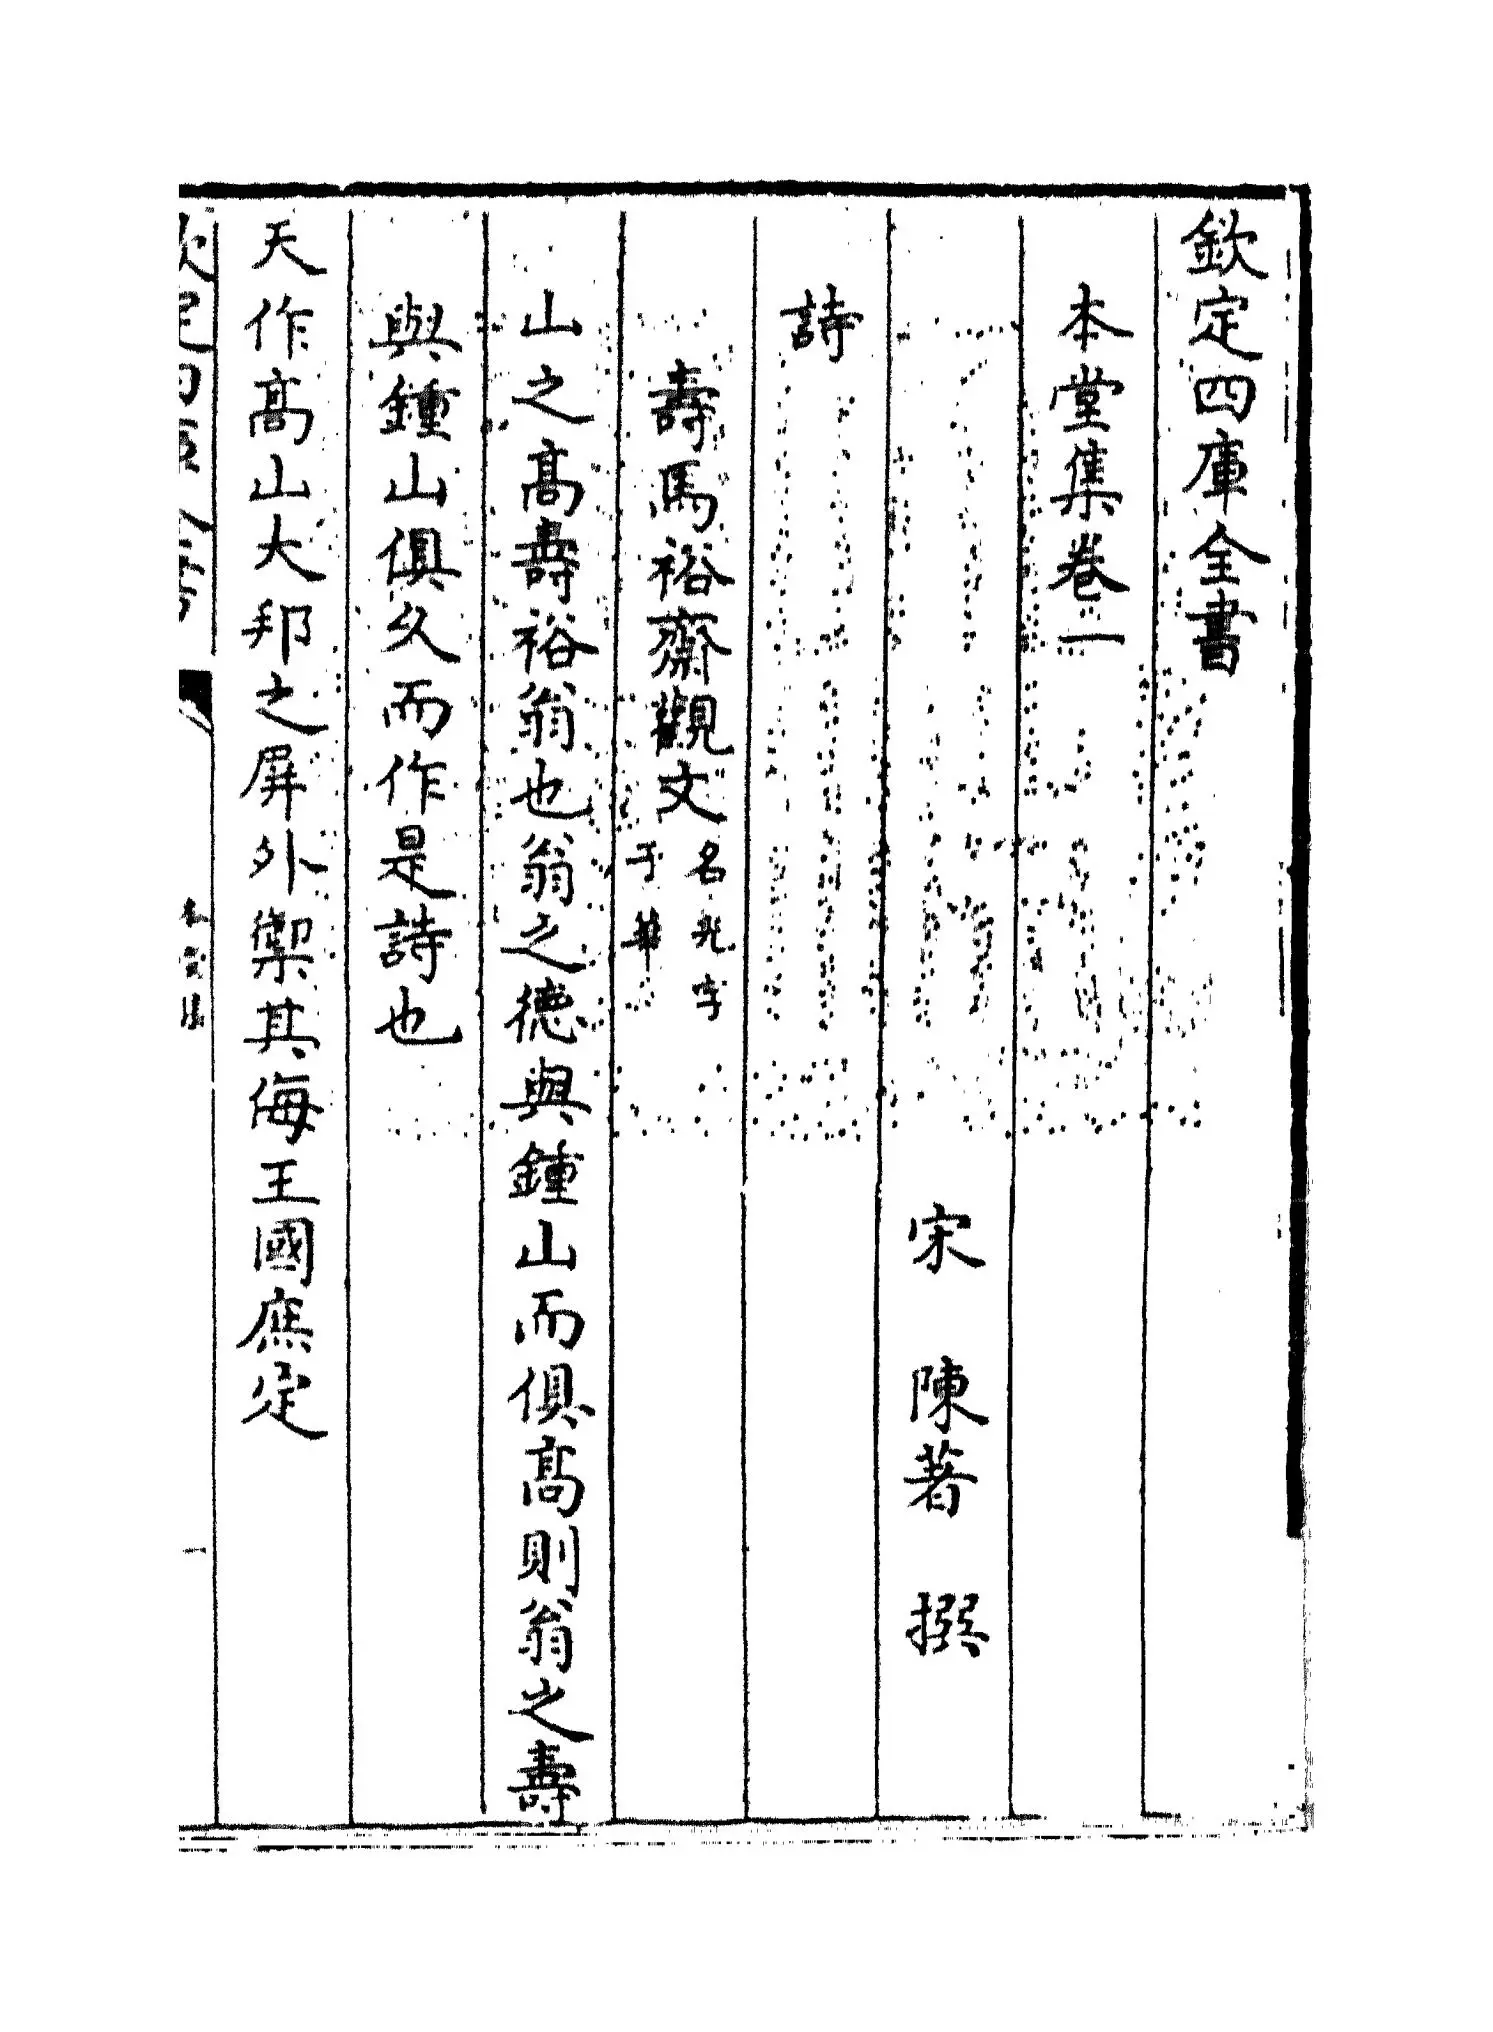 欽定四庫全書
本堂集卷一
宋 陳著 撰
詩
壽馬裕齋觀文名光字
于華
山之髙壽裕翁也翁之德與鍾山而俱髙則翁之壽
與鍾山俱久而作是詩也
天作髙山大邦之屏外禦其侮王國庶定
本堂集
一